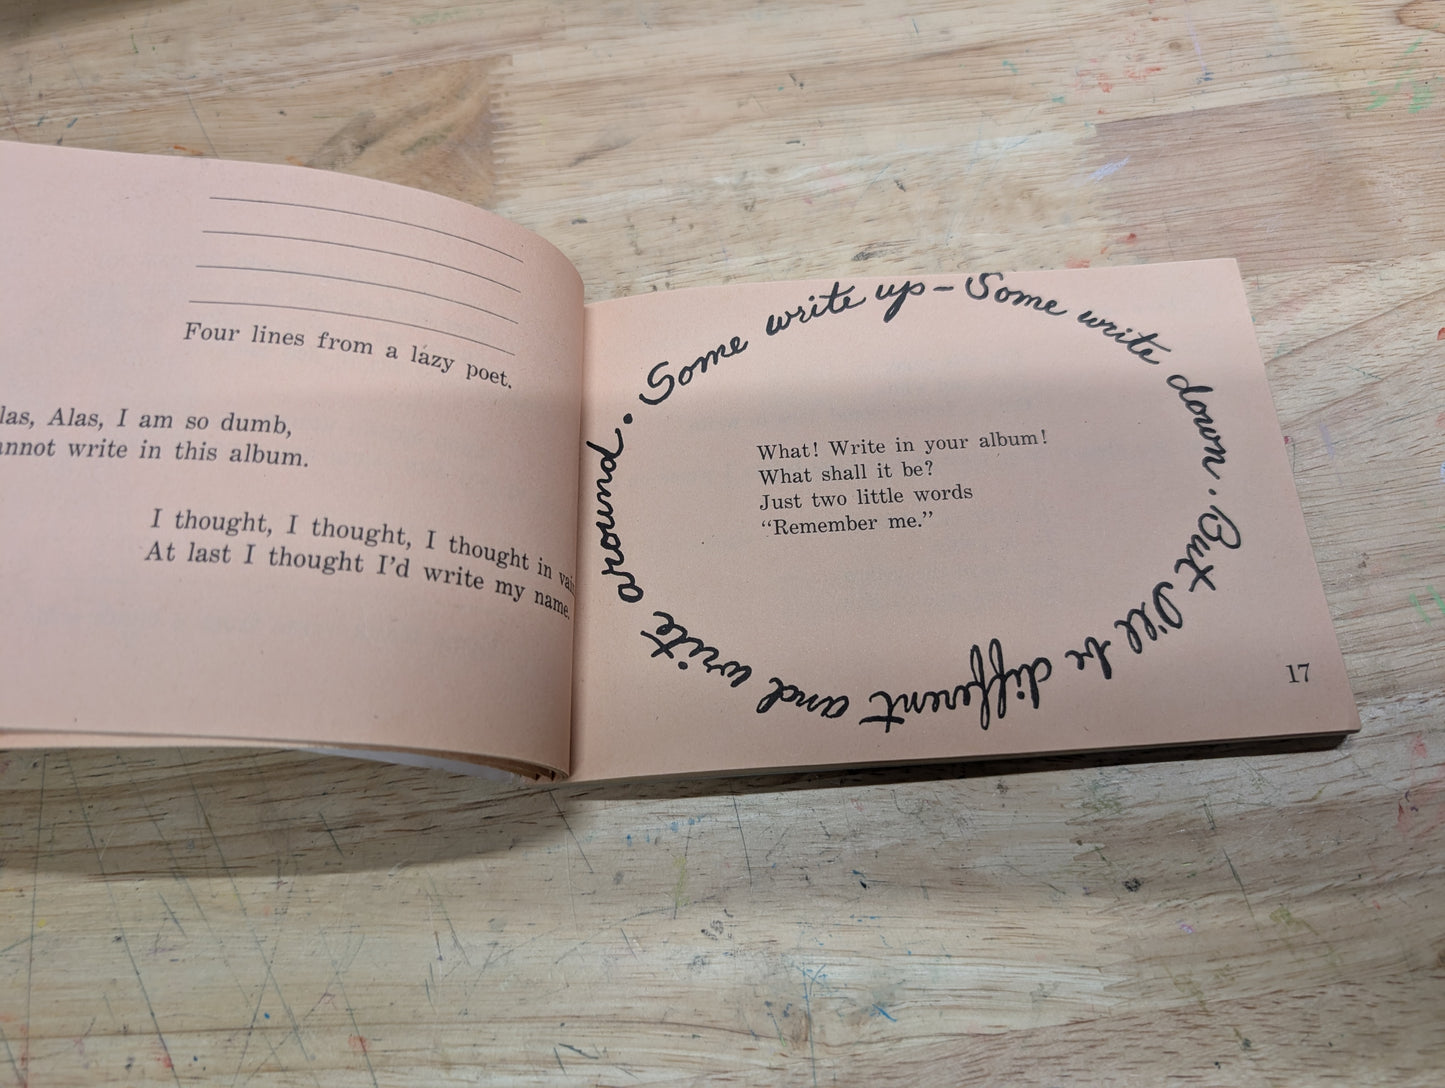 Four lines from a lazy poet.
las, Alas, I am so dumb,
nnot write in this album.
I thought, I thought, I thought in vai
At last I thought I'd write my name.
Some write up – Some write down. But I'll be different and write around.
What! Write in your album!
What shall it be?
Just two little words
"Remember me."
17